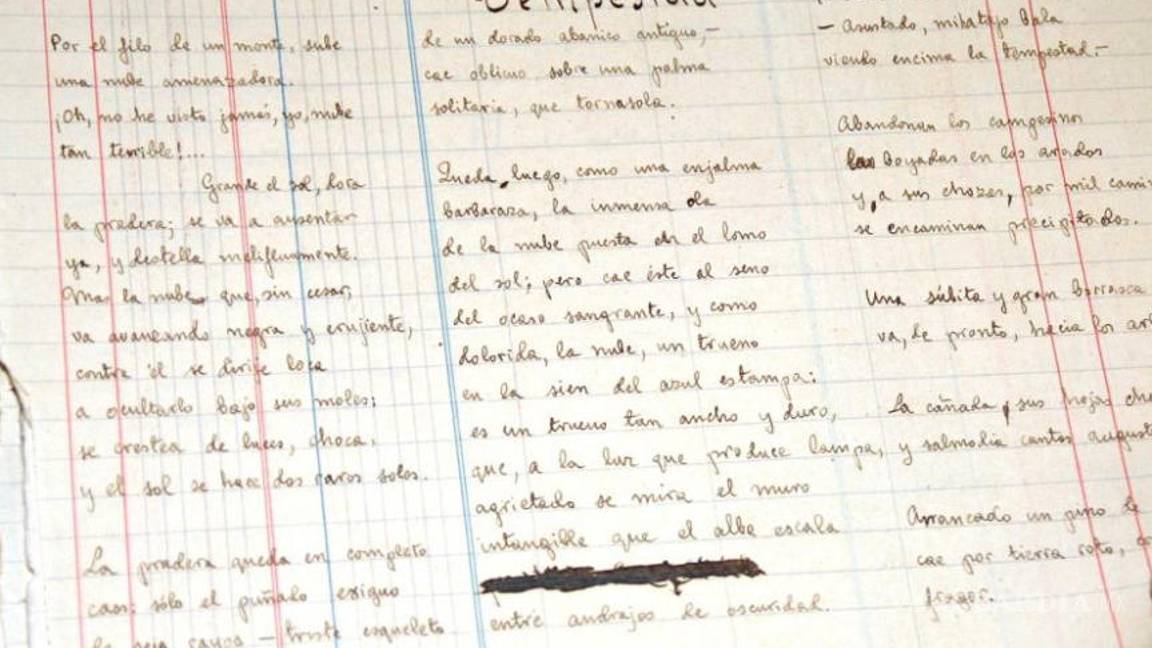 Tempestad
Por el filo de un monte, sube
una nube amenazadora.
¡Oh, no he visto jamás, yo, nube
tan terrible!...
Grande el sol, dora
la pradera; se va a ausentar
ya, y destella melifluamente.
Mas la nube que, sin cesar,
va avanzando negra y crujiente,
contra él se dirije loca
a ocultarlo bajo sus moles:
se crestea de luces, choca,
y el sol se hace dos raros soles.
La pradera queda en completo
caos: sólo el puñado exiguo
triste esqueleto
de un dorado abanico antiguo,—
cae oblicuo sobre una palma
solitaria, que tornasola.
Queda, luego, como una enjalma
barbaraza, la inmensa ola
de la nube puesta en el lomo
del sol; pero cae éste al seno
del ocaso sangrante, y como
dolorida, la nube, un trueno
en la sien del azul estampa:
es un trueno tan ancho y duro,
que, a la luz que produce lampa,
agrietado se mira el muro
intangible que el albe escala
entre andrajos de oscuridad.
— Asustado, mi hatajo bala
viendo encima la tempestad.—
Abandonan los campesinos
las boyadas en los arados
y, a sus chozas, por mil cami
se encaminan precipitados.
Una súbita y gran borrasca
va, de pronto, hacia los
La cañada, sus hojas
y salmodia cantos
Arrancado un pino de
cae por tierra roto,
fragor.